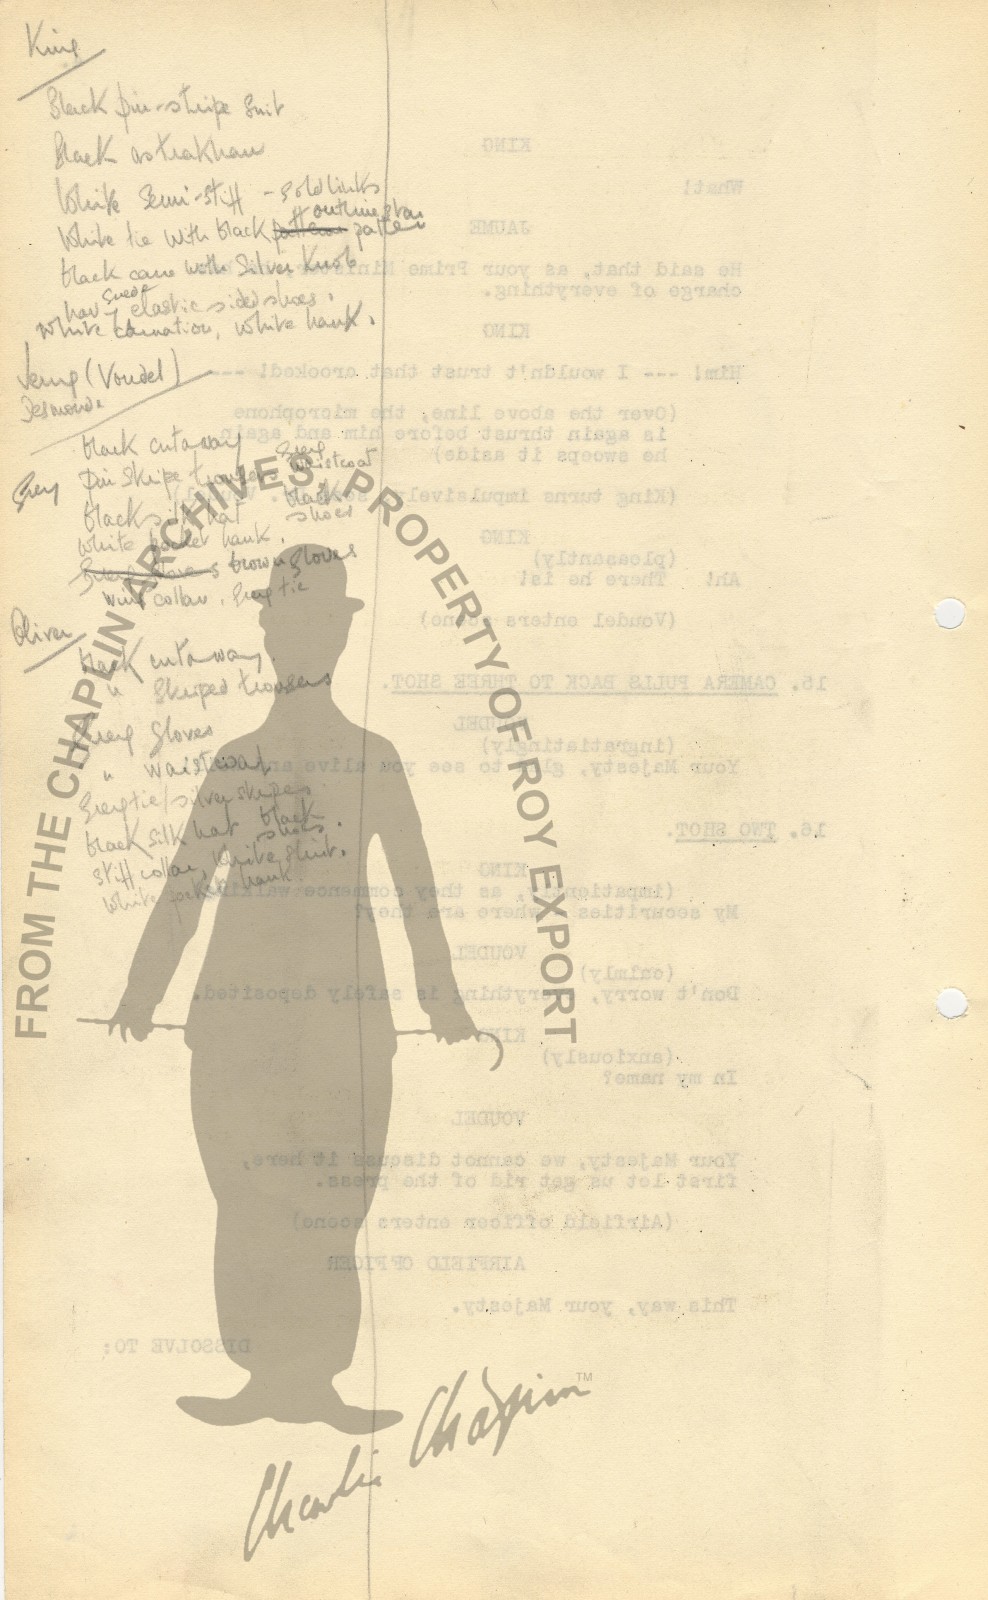 King
Black pin-stripe suit
Black astrakhan
White Semi-stiff - gold links
outline
White tie with black pattern
black cane with Silver Knob
suede
elastic sided shoes.
White carnation, white hank.
Jerry (Voudel)
Desmonde
black cutaway
Grey pin stripe trousers grey waistcoat
black silk hat black shoes
white pocket hank.
brown gloves
wing collar, grey tie
Oliver
black cutaway.
" striped trousers
Grey gloves
" waistcoat
grey tie/silver stripes
black silk hat black shoes.
stiff collar, white shirt.
white pocket hank.
KING
What!
JAUME
He said that, as your Prime Minister
charge of everything.
KING
Him! --- I wouldn't trust that crooked! ---
(Over the above line, the microphone
is again thrust before him and again
he sweeps it aside)
(King turns impulsively, Voudel)
KING
(pleasantly)
Ah! There he is!
(Voudel enters scene)
16. CAMERA PULLS BACK TO THREE SHOT.
VOUDEL
(ingratiatingly)
Your Majesty, glad to see you alive and
16. TWO SHOT.
KING
(impatiently, as they commence walking)
My securities - where are they?
VOUDEL
(calmly)
Don't worry, everything is safely deposited.
KING
(anxiously)
In my name?
VOUDEL
Your Majesty, we cannot discuss it here,
first let us get rid of the press.
(Airfield officer enters scene)
AIRFIELD OFFICER
This way, your Majesty.
DISSOLVE TO:
FROM THE CHAPLIN ARCHIVES. PROPERTY OF ROY EXPORT
Charlie Chaplin™